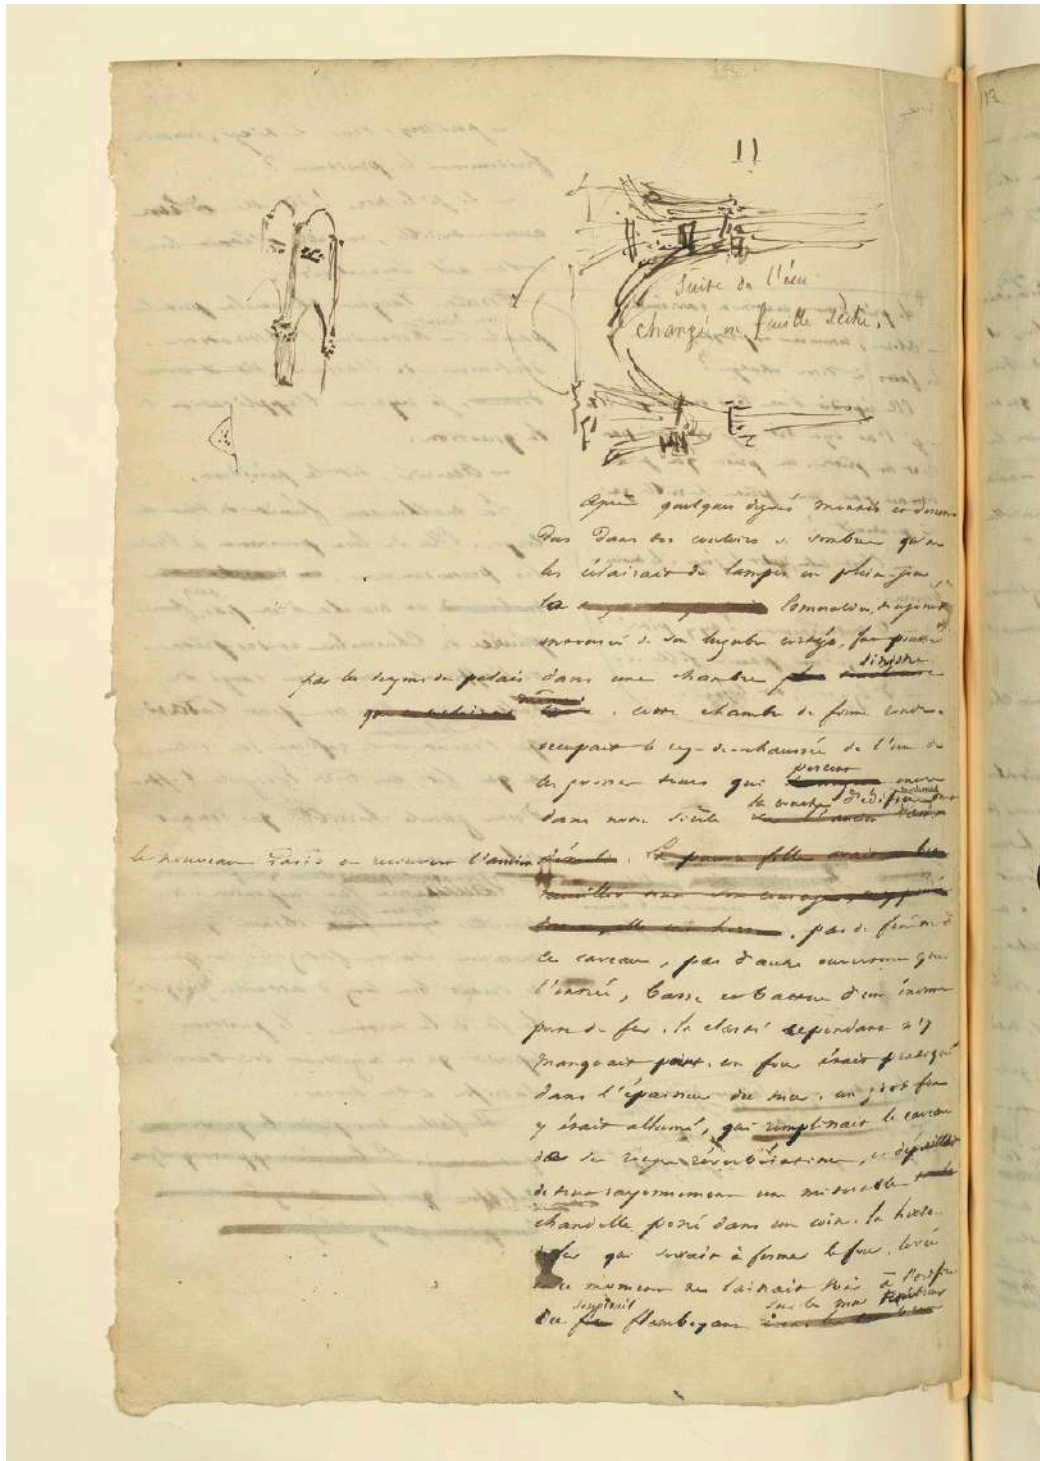 II
Suite de l'écu
changé en feuille sèche.
Après quelques degrés montés et descen-
dus dans des couloirs si sombres qu'on
les éclairait de lampes en plein jour,
la Esmeralda, toujours
de son lugubre cortège, fut poussée
par les sergents du palais dans une chambre sinistre
. cette chambre de forme ronde
occupait le rez-de-chaussée de l'une de
ces grosses tours qui percent encore
dans notre siècle la couche d'édifices modernes dont
le nouveau Paris a recouvert l'ancien
. pas de fenêtre à
ce caveau, pas d'autre ouverture que
l'entrée, basse et battue d'une énorme
porte de fer. la clarté cependant n'y
manquait point. un four était pratiqué
dans l'épaisseur du mur. un gros feu
y était allumé, qui remplissait le caveau
de ses rouges réverbérations, et dépouillait
de tout rayonnement une misérable
chandelle posée dans un coin. la herse
de fer qui servait à fermer le four, levée
en ce moment ne laissait voir à l'orifice
du soupirail flamboyant sur le mur ténébreux